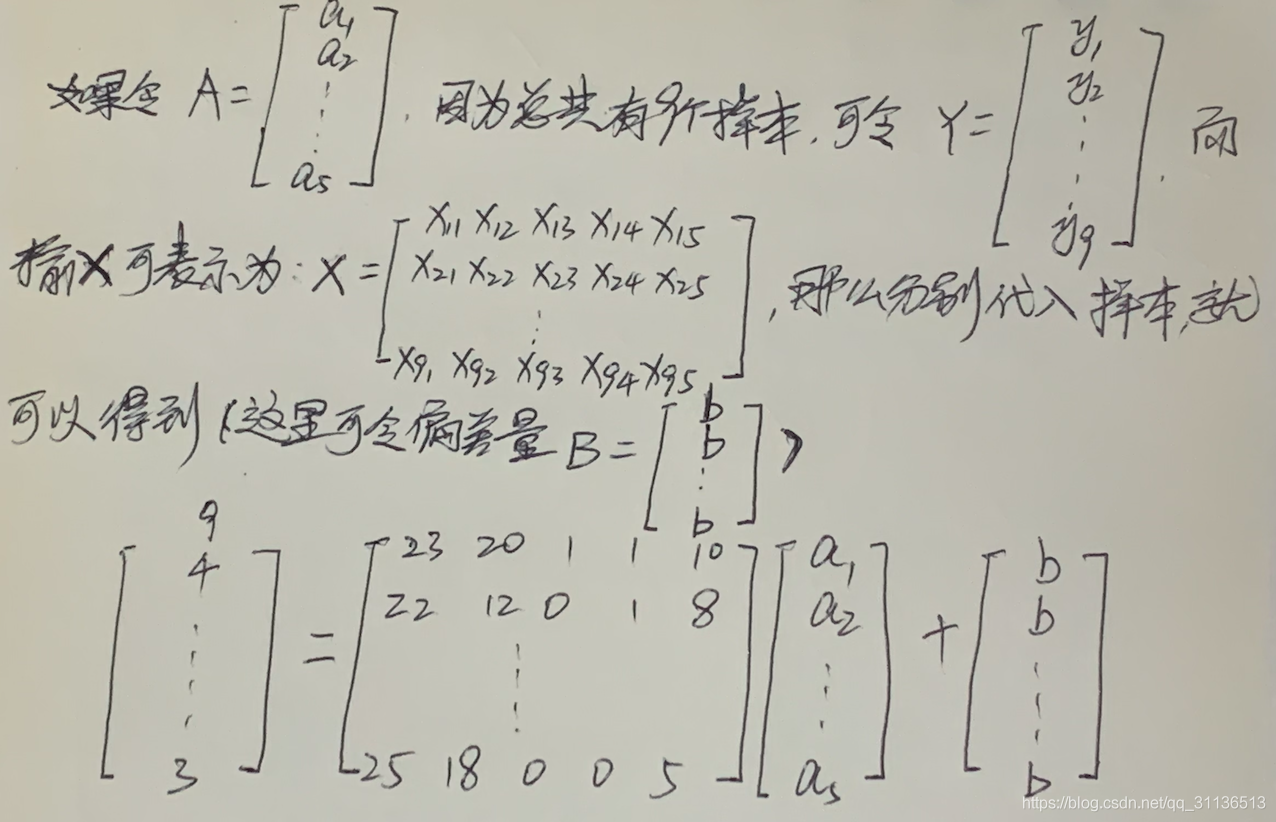 如果令 A = [a1 a2 ⋮ a5] . 因为总共有9个样本, 可令 Y = [y1 y2 ⋮ y9] . 而
输入X可表示为: X = [x11 x12 x13 x14 x15
x21 x22 x23 x24 x25
⋮
x91 x92 x93 x94 x95] , 那么分别代入样本, 就
可以得到 (这里可令偏差量 B = [b b ⋮ b] )
[9 4 ⋮ 3] = [23 20 1 1 10
22 12 0 1 8
⋮
25 18 0 0 5] [a1 a2 ⋮ a5] + [b b ⋮ b]
https://blog.csdn.net/qq_31136513